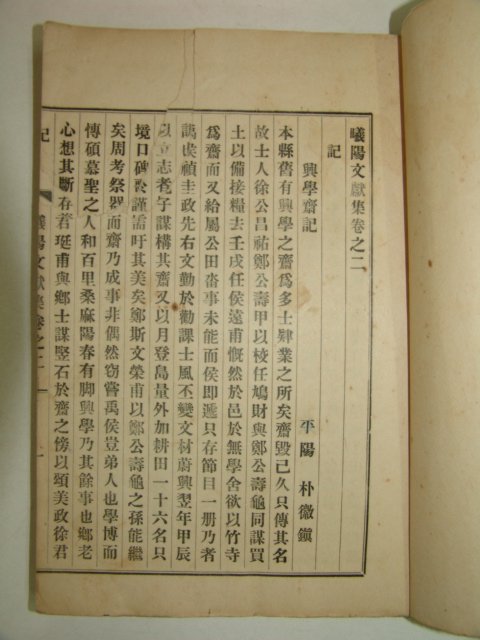 曦陽文獻集卷之二
記
興學齋記
平陽 朴徽鎭
本縣舊有興學之齋爲多士肄業之所矣齋毀已久只傳其名
故士人徐公昌祐鄭公壽甲以校任鳩財與鄭公壽龜同謀買
土以備接糧去壬戌任侯遠甫慨然於邑於無學舍欲以竹寺
爲齋而又給屬公田畓事未能而侯卽遞只存節目一册乃者
侯禎圭政先右文勤於勸課士風丕變文材蔚興翌年甲辰
以立志耄于謀構其齋又以月登島量外加耕田一十六名只
境口碑歌謹讅吁其美矣鄭斯文榮甫以鄭公壽龜之孫能繼
矣周考祭器而齋乃成事非偶然窃嘗禹侯豈弟人也學博而
傳碩慕聖之人和百里桑麻陽春有脚興學乃其餘事也鄉老
心想其斷存君珽甫與鄉士謀竪石於齋之傍以頌美政徐君
記
曦陽文獻集卷之二
一